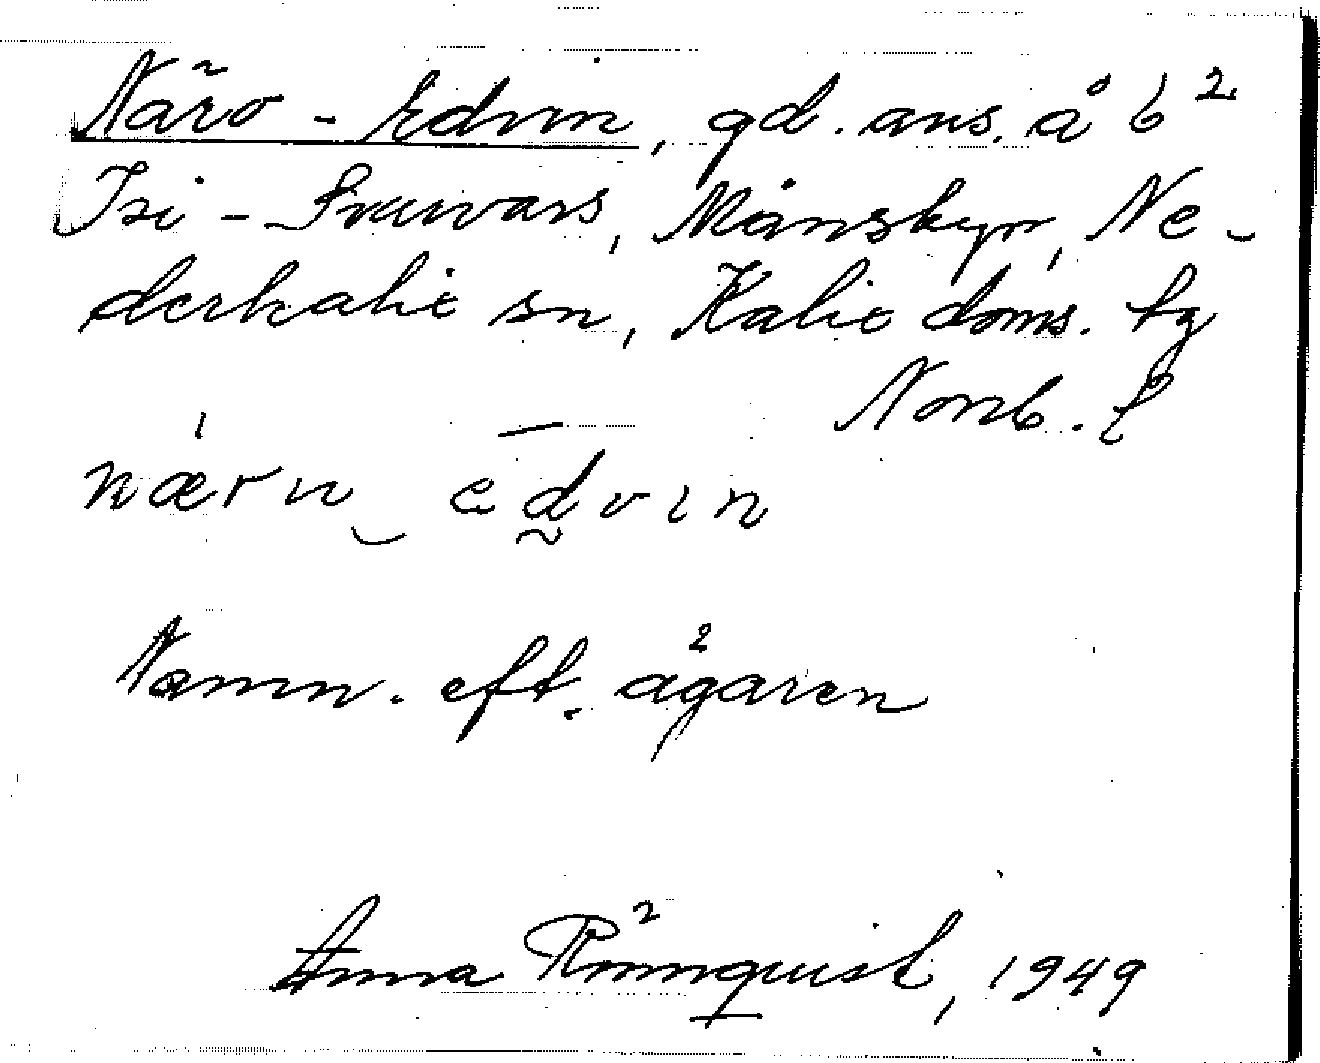 Näro-Edvin, gd. ans. å 6²
Isi-Snuvars, Månskyn, Ne-
derkalix sn, Kalix doms. tg
Norrb. l
nærυ edvin
Namn. eft. ägaren
Anna Rönnquist, 1949